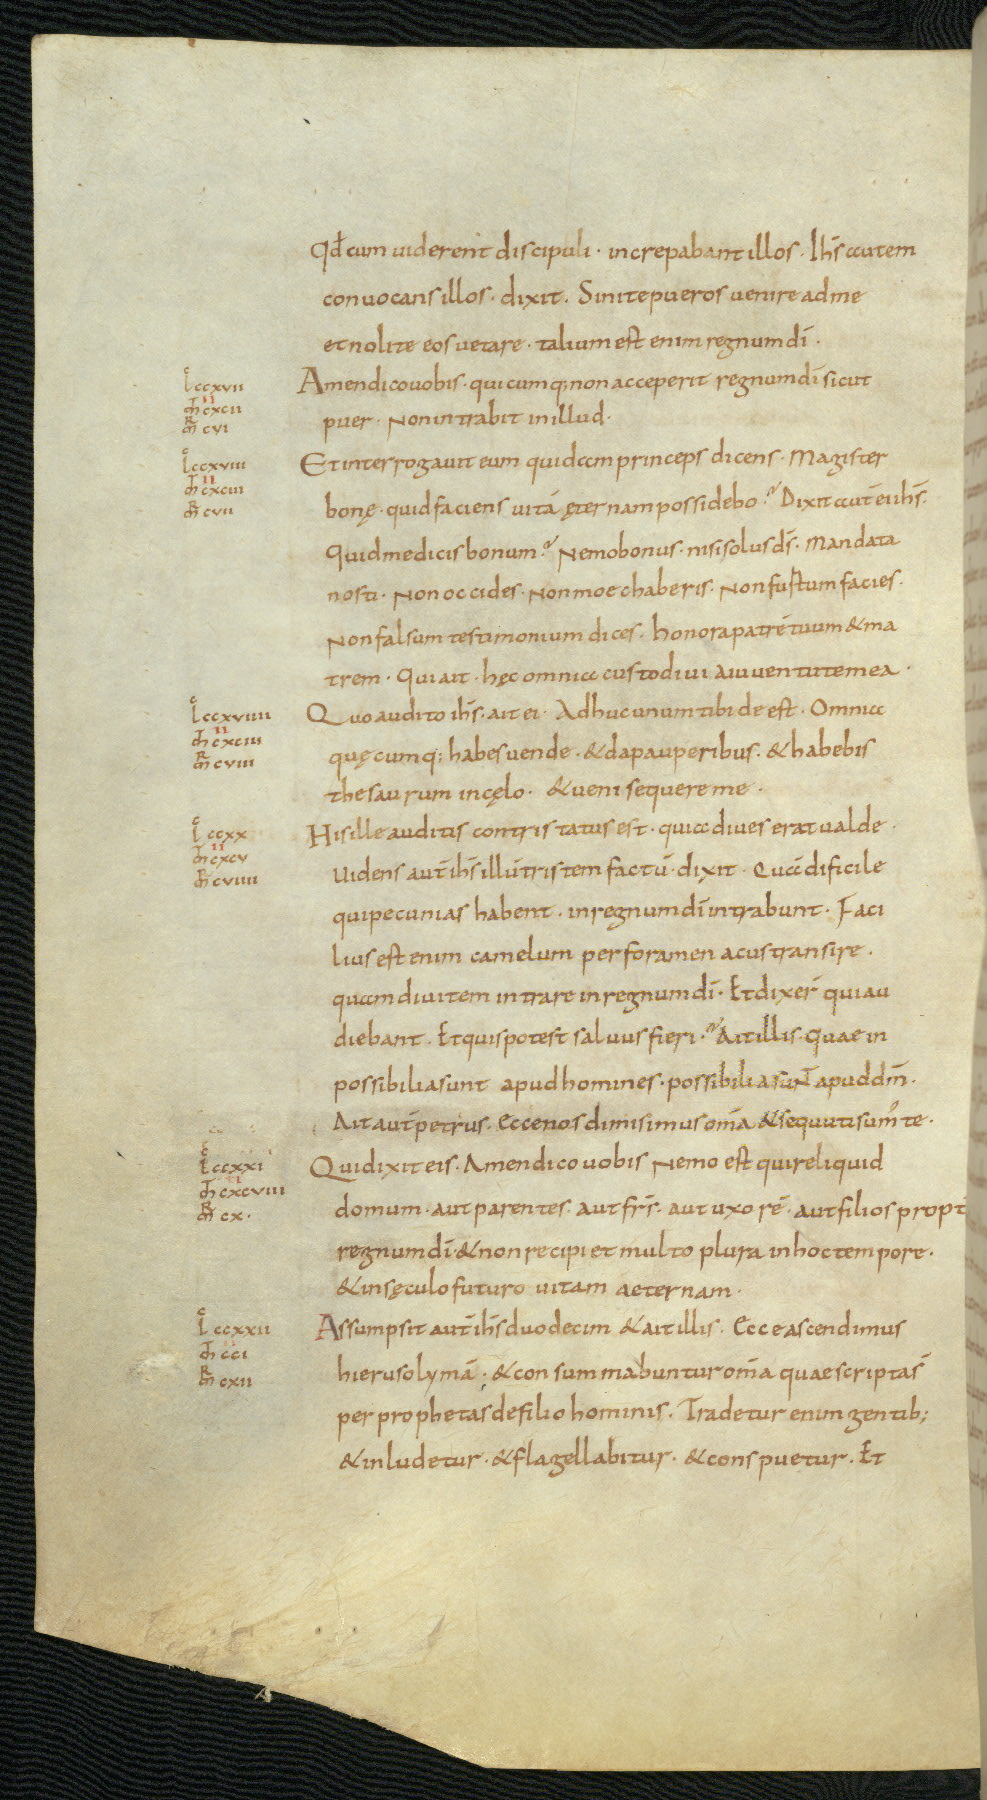 Qđ cum uiderent discipuli · increpabant illos · Ihs̄ autem
conuocans illos · dixit · Sinite pueros uenire ad me
et nolite eos uetare · talium est enim regnum dī ·
l̄ ccxvii
Amen dico uobis · quicumq; non acceperit regnum dī sicut
m̄ cxcii
ii
puer · Non intrabit in illud ·
m̄r cvi
l̄ ccxviii
Et interrogauit eum quidam princeps dicens · Magister
m̄ cxciii
ii
bonę · quid faciens uitā ęternam possidebo? Dixit aut̄ ei ihs̄ ·
m̄r cvii
Quid me dicis bonum? Nemo bonus · nisi solus ds̄ · Mandata
nosti · Non occides · Non moechaberis · Non furtum facies ·
Non falsum testimonium dices · honora patrē tuum & ma
trem · Qui ait · hęc omnia custodiui a iuuentute mea ·
l̄ ccxviiii
Quo audito ihs̄ · ait ei · Adhuc unum tibi deest · Omnia
m̄ cxciiii
ii
quęcumq; habes uende · & da pauperibus · & habebis
m̄r cviii
thesaurum in cęlo · & ueni sequere me ·
l̄ ccxx
His ille auditis contristatus est · quia diues erat ualde ·
m̄ cxcv
ii
Uidens aut̄ ihs̄ illū tristem factū · dixit · Quā dificile
m̄r cviiii
qui pecunias habent · in regnum dī intrabunt · Faci
lius est enim camelum per foramen acus transire ·
quam diuitem intrare in regnum dī · Et dixer̄ qui au
diebant · Et quis potest saluus fieri? Ait illis · quae in
possibilia sunt apud homines · possibilia sunt apud dm̄ ·
Ait aut̄ petrus · Ecce nos dimisimus om̄a & sequuti sum' te ·
l̄ ccxxi
Qui dixit eis · Amen dico uobis Nemo est qui reliquid
m̄ cxcviii
ii
domum · aut parentes · aut frs̄ · aut uxorē · aut filios propt̄
m̄r cx ·
regnum dī & non recipiet multo plura in hoc tempore ·
& in sęculo futuro uitam aeternam ·
l̄ ccxxii
Assumpsit aut̄ ihs̄ duodecim & ait illis · Ecce ascendimus
m̄ cci
ii
hierusolymā · & consummabuntur om̄a quae scripta s̄
m̄r cxii
per prophetas de filio hominis · Tradetur enim gentib;
& inludetur · & flagellabitur · & conspuetur · Et